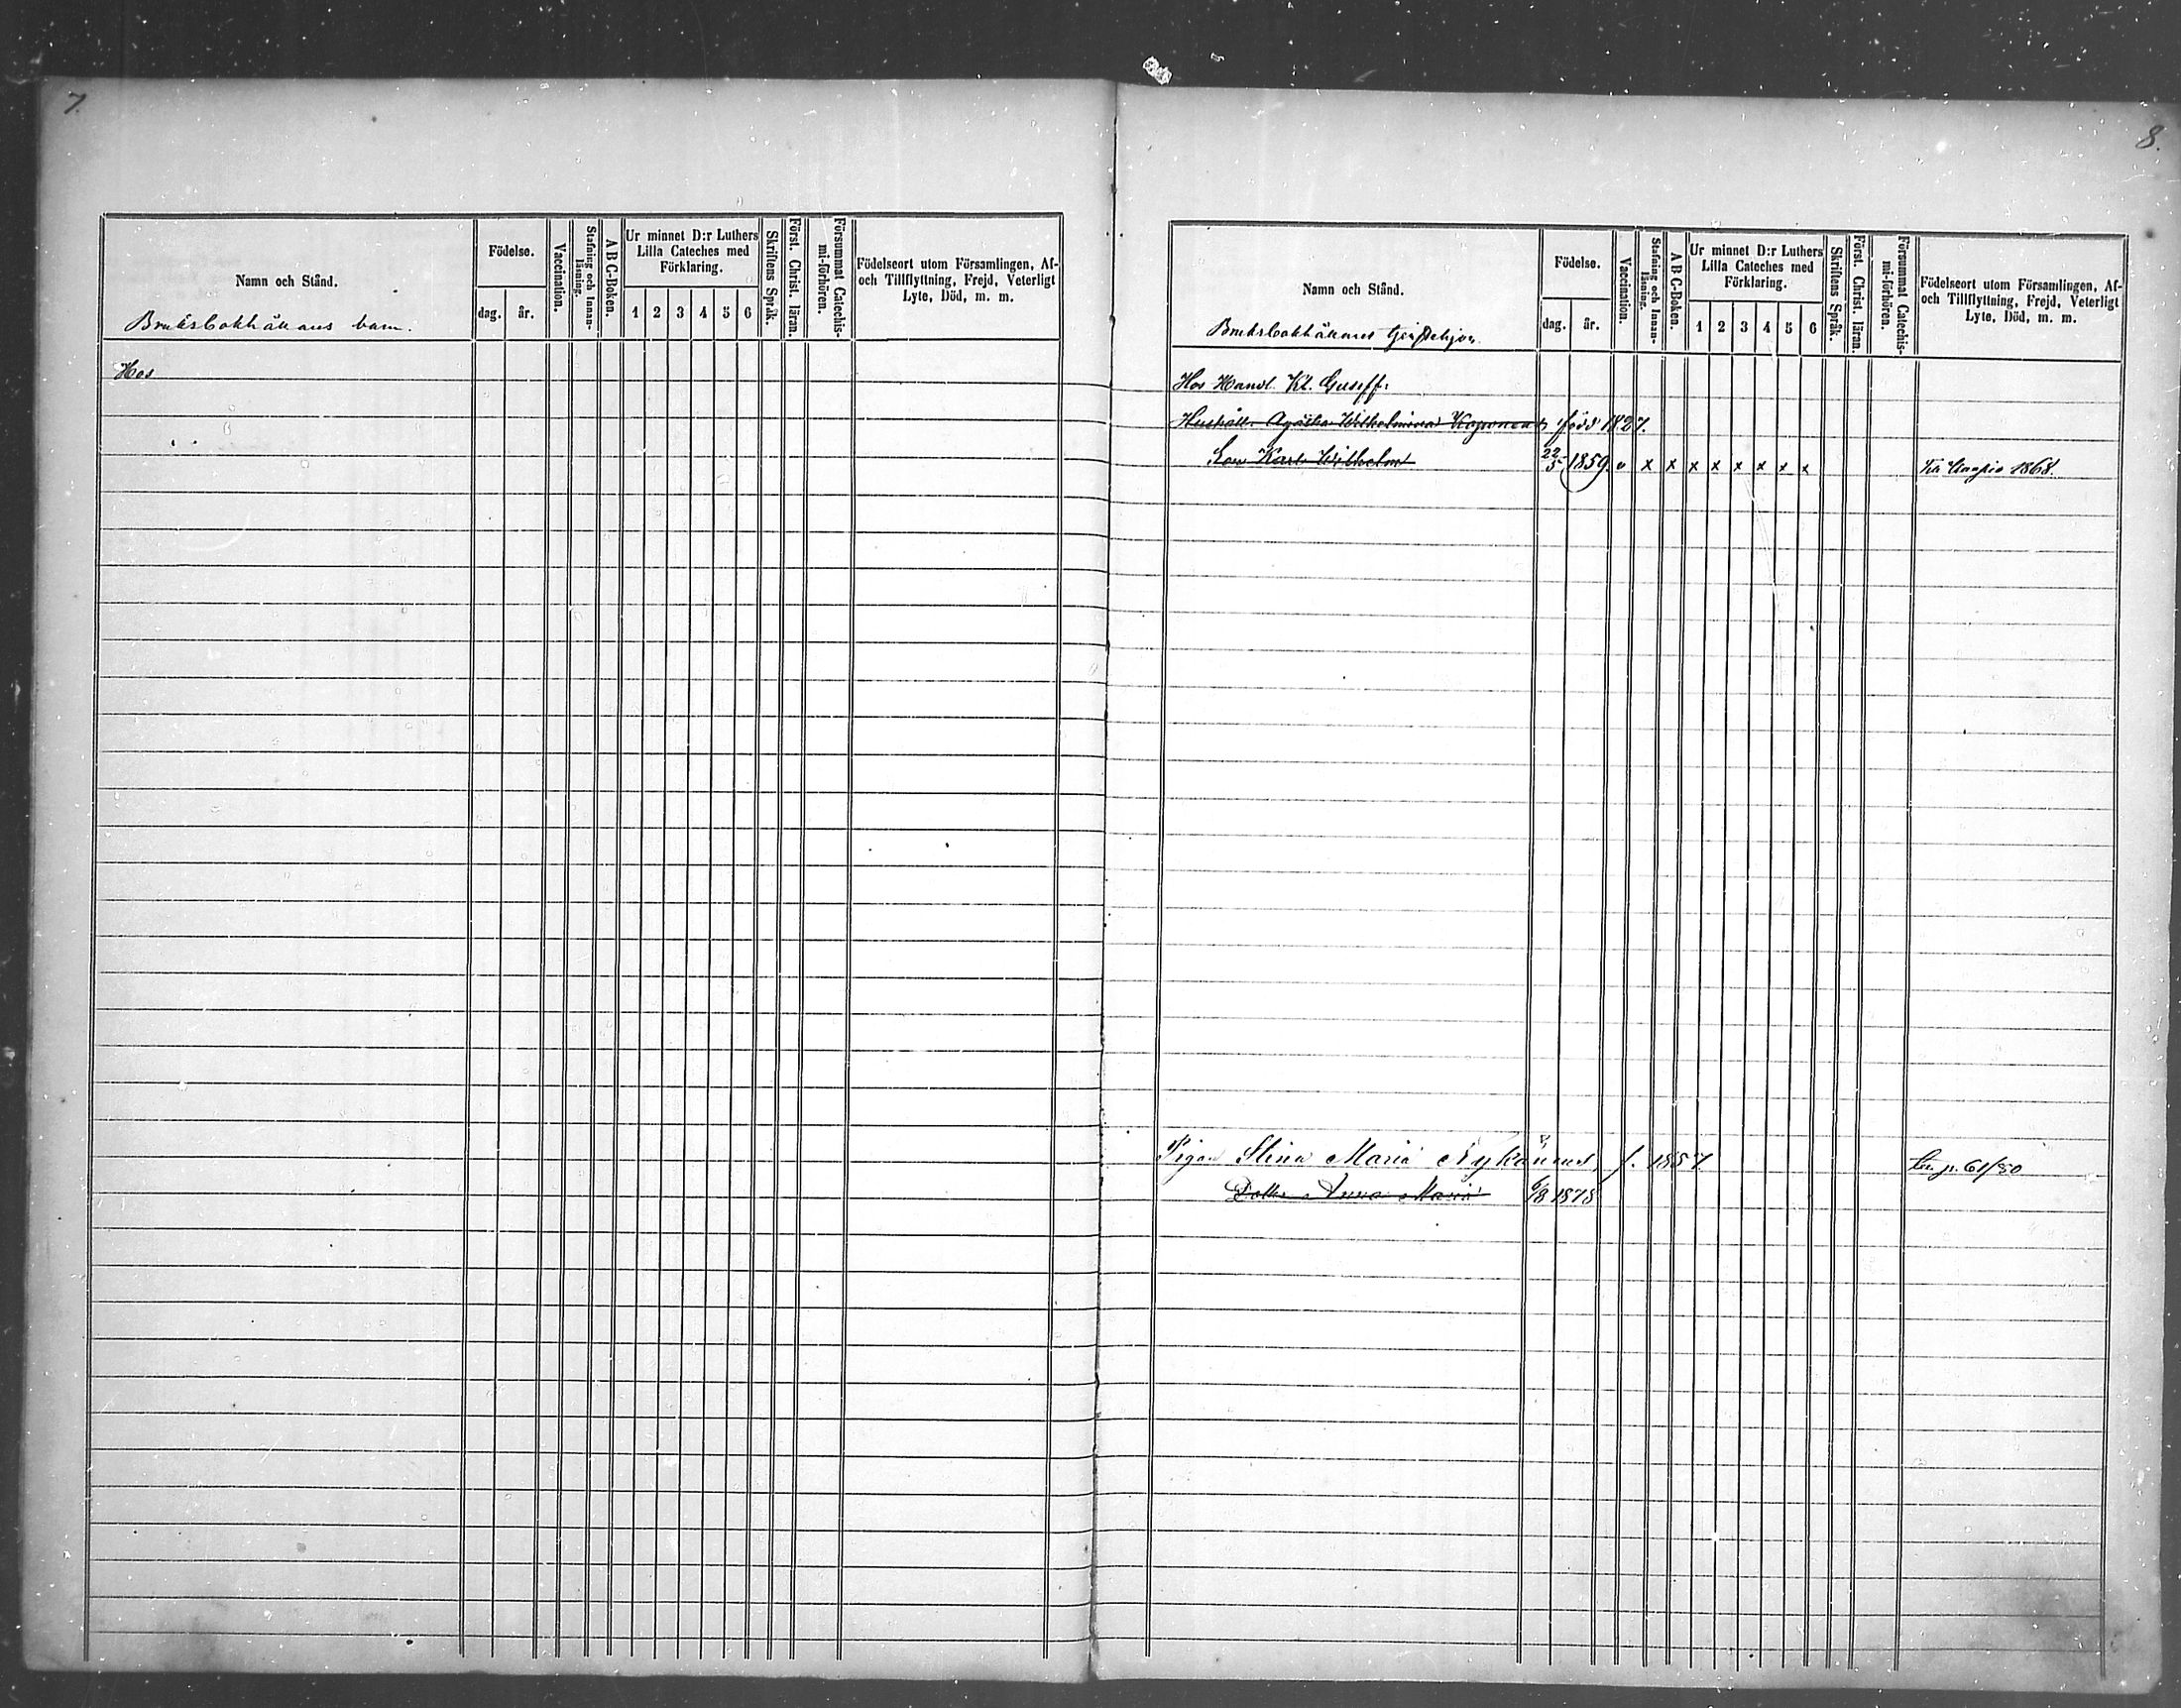 7.
Namn och Stånd.
Födelse.
dag. år.
Vaccination.
Stafning och Innan-
läsning.
A B C-Boken.
Ur minnet D:r Luthers
Lilla Cateches med
Förklaring.
1 2 3 4 5 6
Skriftens Språk.
Först. Christ. läran.
Försummat Catechis-
mi-förhören.
Födelseort utom Församlingen, Af-
och Tillflyttning, Frejd, Veterligt
Lyte, Död, m. m.
Bruksbokhållans barn.
Hos
8.
Namn och Stånd.
Födelse.
dag. år.
Vaccination.
Stafning och Innan-
läsning.
A B C-Boken.
Ur minnet D:r Luthers
Lilla Cateches med
Förklaring.
1 2 3 4 5 6
Skriftens Språk.
Först. Christ. läran.
Försummat Catechis-
mi-förhören.
Födelseort utom Församlingen, Af-
och Tillflyttning, Frejd, Veterligt
Lyte, Död, m. m.
Bruksbokhållarnes
Hos Handl. Kl. Guseff:
Hushåll. Wilhelmina född 1827.
Son Karl Wilhelm 22/5 1859 v x x x x x x x x Till Kuopio 1868.
Pigan Stina Maria Nykänen, f. 1857 61/80
Dotter Anna Maria 6/8 1878